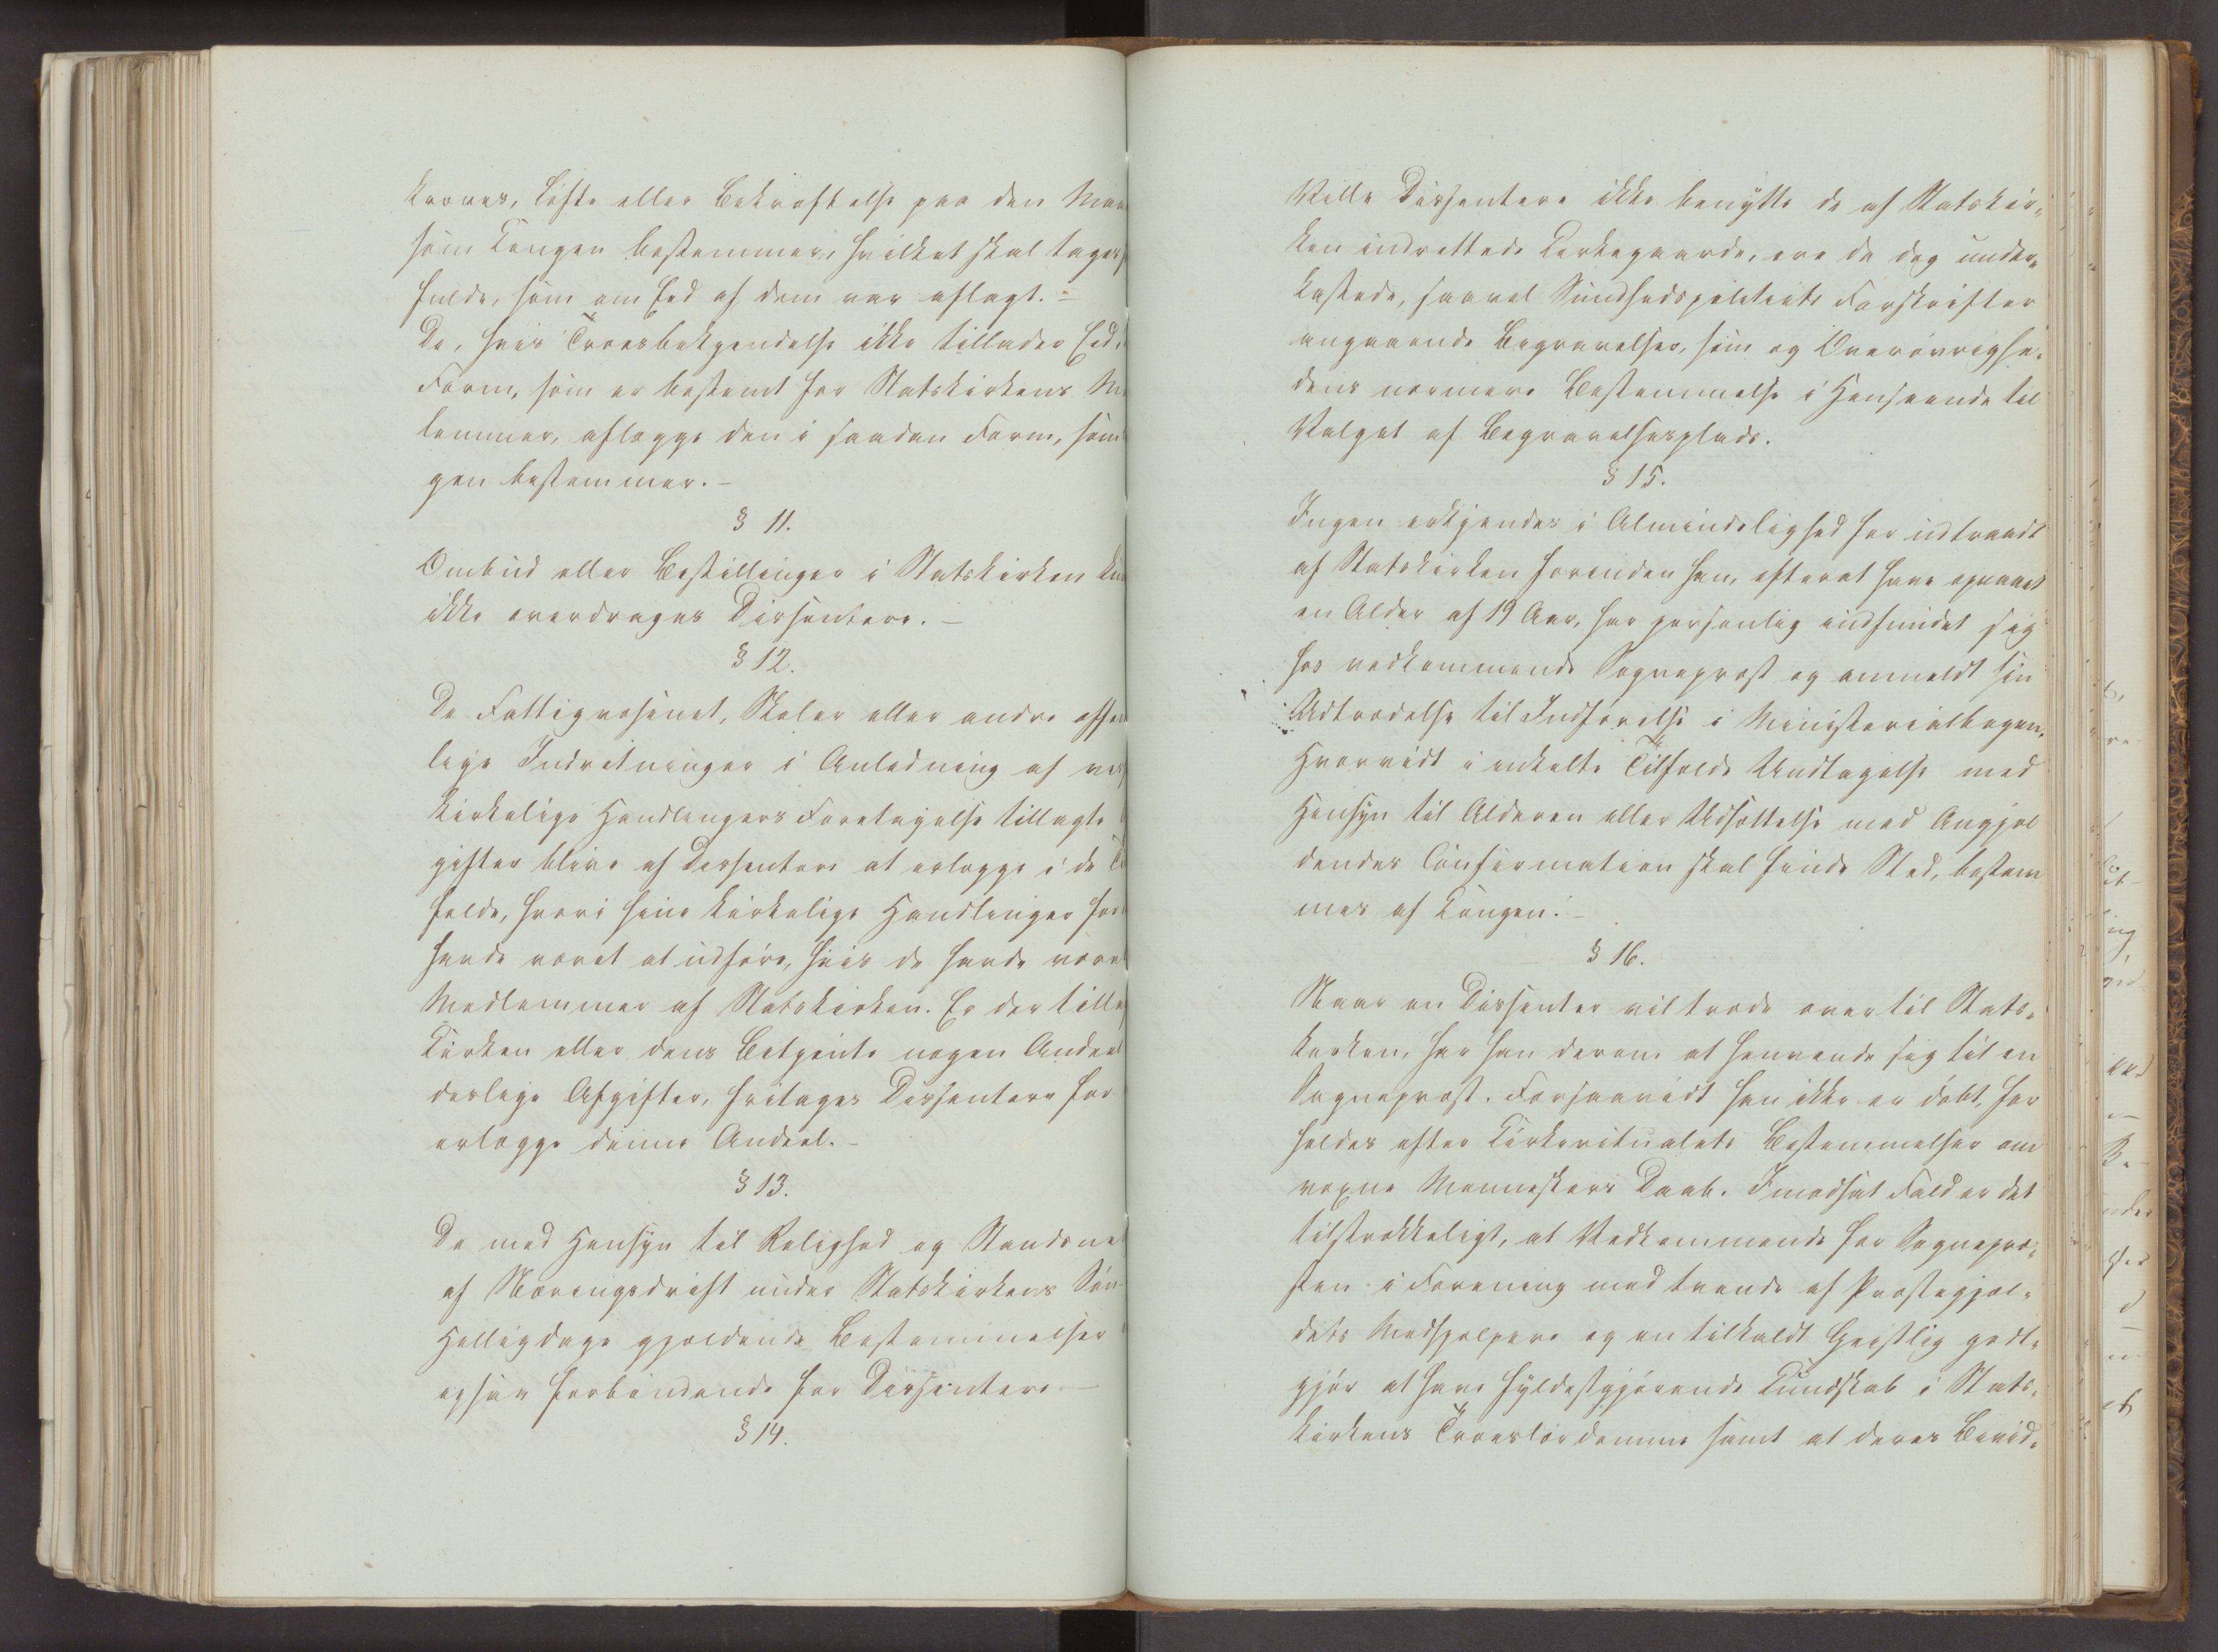 kræves, Løfte eller Bekræftelse paa den Maa
som Kongen bestemmer, hvilket skal tages
fulde, som om Eed af dem var aflagt. -
De, hvis Troesbekjendelse ikke tillader Eed,
Form, som er bestemt for Statskirkens Me
lemmer, aflægge den i saadan Form, som
gen bestemmer. -
§ 11.
Ombud eller Bestillinger i Statskirken ku
ikke overdrages Dissentere. -
§ 12.
De Fattigvæsenet, Skoler eller andre offen
lige Indretninger i Anledning af vis
kirkelige Handlingers Foretagelse tillagte
gifter blive af Dissentere at erlægge i de Ti
fælde, hvori hine kirkelige Handlinger for
havde været at udføre, hvis de havde være
Medlemmer af Statskirken. Er der tilla
Kirken eller dens Betjente nogen Andeel
deslige Afgifter, fritages Dissentere for
erlægge denne Andeel. -
§ 13.
De med Hensyn til Rolighed og Standsne
af Næringsdrift under Statskirkens Søn-
Helligdage gjældende Bestemmelser
ogsaa forbindende for Dissentere -
§ 14.
Ville Dissentere ikke benytte de af Statskir-
ken indrettede Kirkegaarde, ere de dog under-
kastede, saavel Sundhedspolitiets Forskrifter
angaaende Begravelser, som og Overøvrighe-
dens nærmere Bestemmelse i Henseende til
Valget af Begravelsesplads.
§ 15.
Ingen erkjendes i Almindelighed for udtraadt
af Statskirken forinden han, efterat have opnaaet
en Alder af 19 Aar, har personlig indfundet sig
hos vedkommende Sognepræst og anmeldt sin
Udtrædelse til Indførelse i Ministerialbogen.
Hvorvidt i enkelte Tilfælde Undtagelse med
Hensyn til Alderen eller Udsættelse med Angjæl
dendes Confirmation skal finde Sted, bestem
mes af Kongen. -
§ 16.
Naar en Dissenter vil træde over til Stats-
kirken, har han derom at henvende sig til en
Sognepræst. Forsaavidt han ikke er døbt, for
holdes efter Kirkeritualets Bestemmelser om
voxne Menneskers Daab. I modsat Fald er det
tilstrækkeligt, at Vedkommende for Sognepræ-
sten i Forening med tvende af Præstegjæl-
dets Medhjælpere og en tilkaldt Geistlig godt-
gjør at have fyldestgjørende Kundskab i Stats-
kirkens Troeslærdomme samt at deres Bevid-